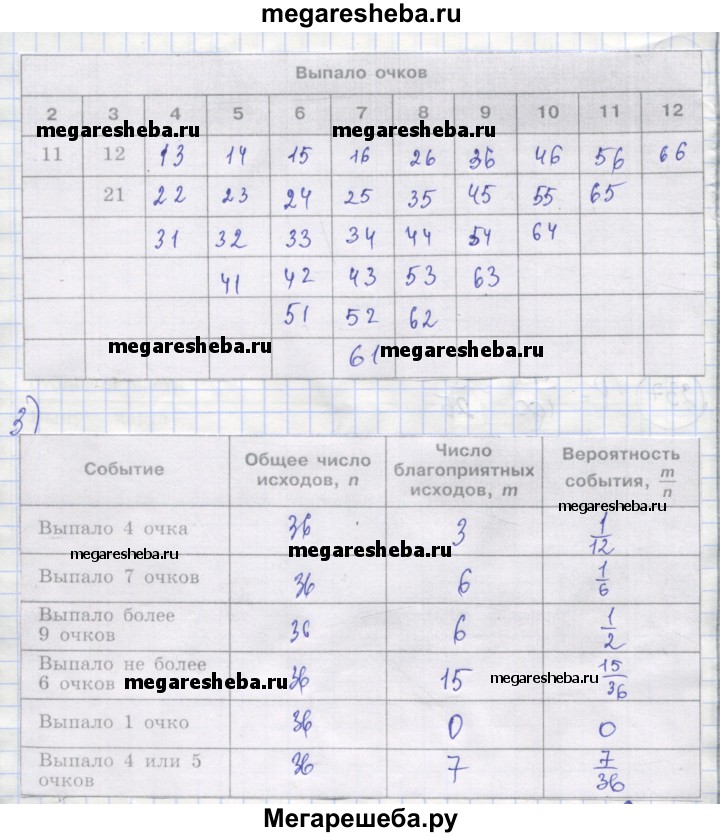 megaresheba.ru
Выпало очков
2 3 4 5 6 7 8 9 10 11 12
megaresheba.ru megaresheba.ru
11 12 13 14 15 16 26 36 46 56 66
21 22 23 24 25 35 45 55 65
31 32 33 34 44 54 64
41 42 43 53 63
51 52 62
megaresheba.ru 61 megaresheba.ru
3)
Событие Общее число исходов, n Число благоприятных исходов, m Вероятность события, m/n
megaresheba.ru
Выпало 4 очка 36 3 1/12
megaresheba.ru megaresheba.ru
Выпало 7 очков 36 6 1/6
Выпало более
9 очков 36 6 1/2
Выпало не более
6 очков 36 15 15/36
megaresheba.ru megaresheba.ru
Выпало 1 очко 36 0 0
Выпало 4 или 5
очков 36 7 7/36
Мегарешеба.ру